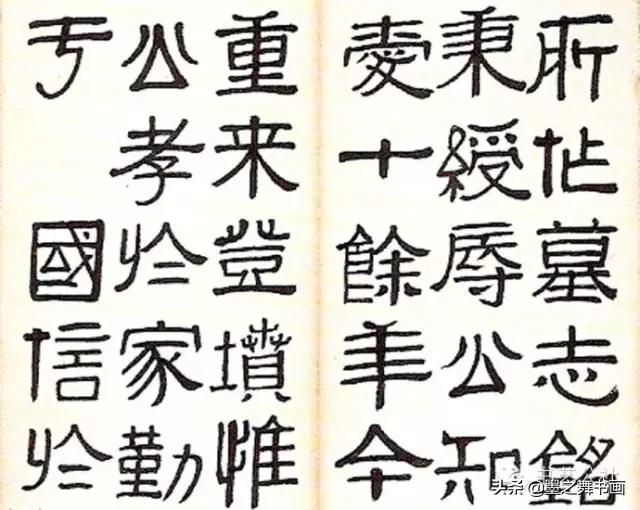 所作墓志銘
秉綬辱公知
愛十餘年今
重来登墳惟
公孝於家勤
于國信於
头条 @墨之舞书画